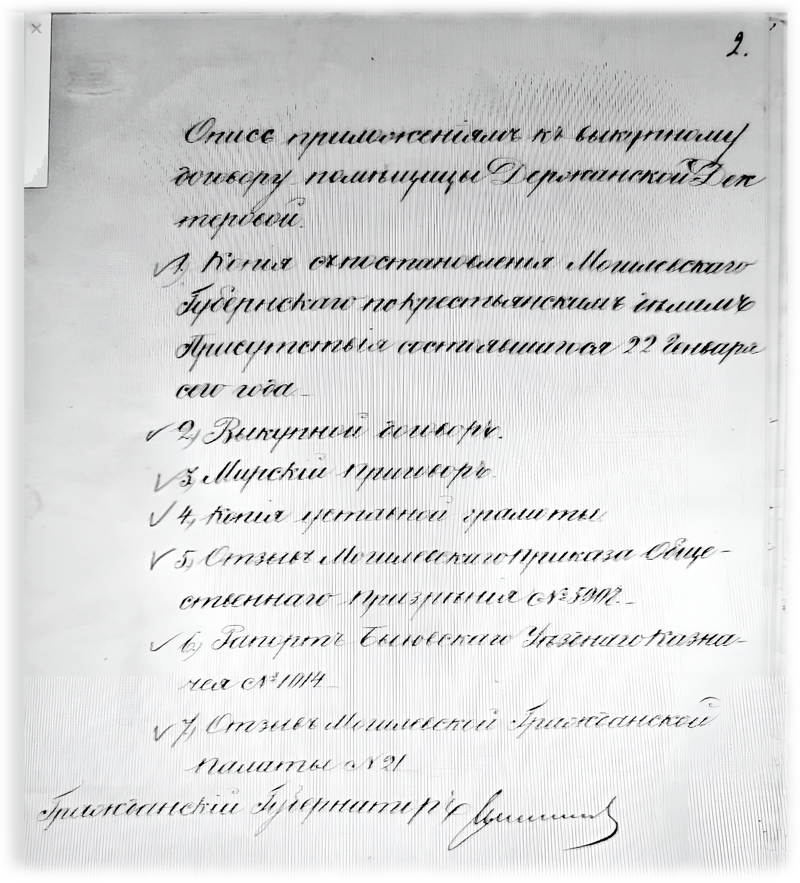 2.
Опись приложеніямъ къ выкупному
договору помѣщицы Держанской Дек
теровой.
1) Копія съ постановленія Могилевскаго
Губернскаго по крестьянскимъ дѣламъ
Присутствія состоявшагося 22 Генваря
сего года
2) Выкупной договоръ.
3) Мирскій приговоръ.
4) Копія уставной грамоты
5) Отзывъ Могилевскаго Приказа Обще-
ственнаго Призрѣнія №
6) Рапортъ Быховскаго Уѣзднаго Казна-
чея № 1014
7) Отзывъ Могилевской Гражданской
Палаты № 21
Гражданскій Губернаторъ